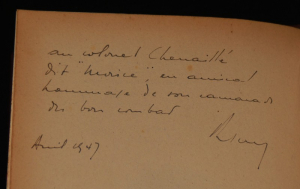 au colonel Chenaillé
dit "Maurice", en amical
hommage de son camarade
du bon combat
Avril 1947